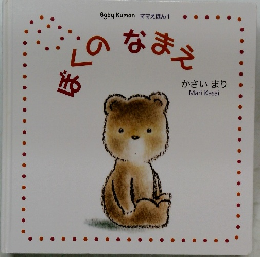 Baby Kumon ママえほん1
ぼくの なまえ
かさい まり
Mari Kasai